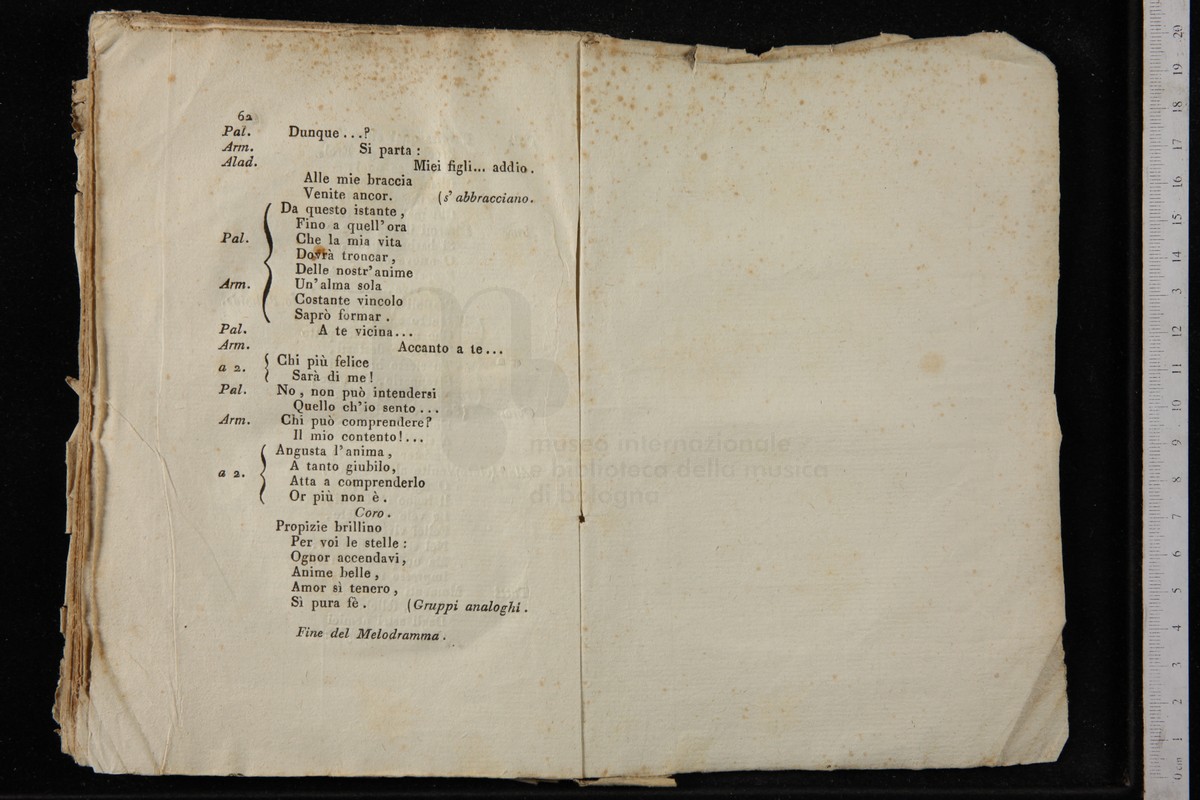 62
Pal. Dunque...?
Arm. Si parta :
Alad. Miei figli... addio.
Alle mie braccia
Venite ancor. (s' abbracciano.
Da questo istante,
Fino a quell' ora
Pal. Che la mia vita
Dovrà troncar,
Delle nostr' anime
Arm. Un' alma sola
Costante vincolo
Saprò formar.
Pal. A te vicina...
Arm. Accanto a te...
a 2. Chi più felice
Sarà di me!
Pal. No, non può intendersi
Quello ch'io sento...
Arm. Chi può comprendere?
Il mio contento!...
Angusta l'anima,
A tanto giubilo,
a 2. Atta a comprenderlo
Or più non è.
Coro.
Propizie brillino
Per voi le stelle :
Ognor accendavi,
Anime belle,
Amor sì tenero,
Sì pura fè. (Gruppi analoghi.
Fine del Melodramma.
museo internazionale
e biblioteca della musica
di bologna
0 cm 1 2 3 4 5 6 7 8 9 10 11 12 13 14 15 16 17 18 19 20